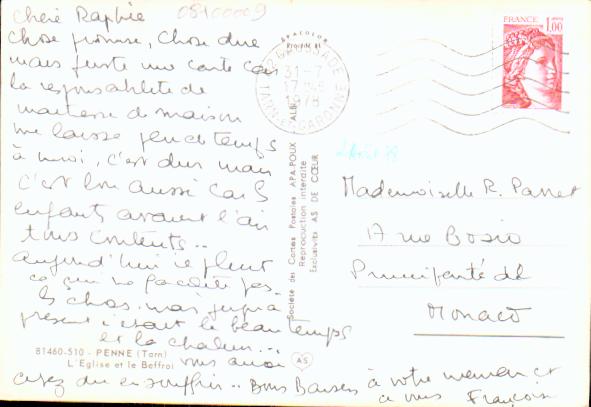 Chère Raphée
08100009
chose promise, chose due
mais juste une carte car
la responsabilité de
maitresse de maison
me laisse peu de temps
à moi, c'est dur mais
c'est bon aussi car les
enfants avaient l'air
tous contents..
aujourd'hui il pleut
ce qui ne facilite pas
les choses, mais jusqu'à
présent c'était le beau temps
et la chaleur...
vous aussi
avez dû en souffrir.. Bons Baisers à votre maman et
à vous Françoise
81460-510 - PENNE (Tarn)
L'Eglise et le Beffroi
APACOLOR
Société des Cartes Postales APA-POUX ALBI
Reproduction interdite
Exclusivité AS DE CŒUR
AS
82 CAUSSADE
31-7
17 H45
1978
TARN-ET-GARONNE
FRANCE
1,00
Mademoiselle R. Pannet
17 rue Bosio
Principauté de
Monaco